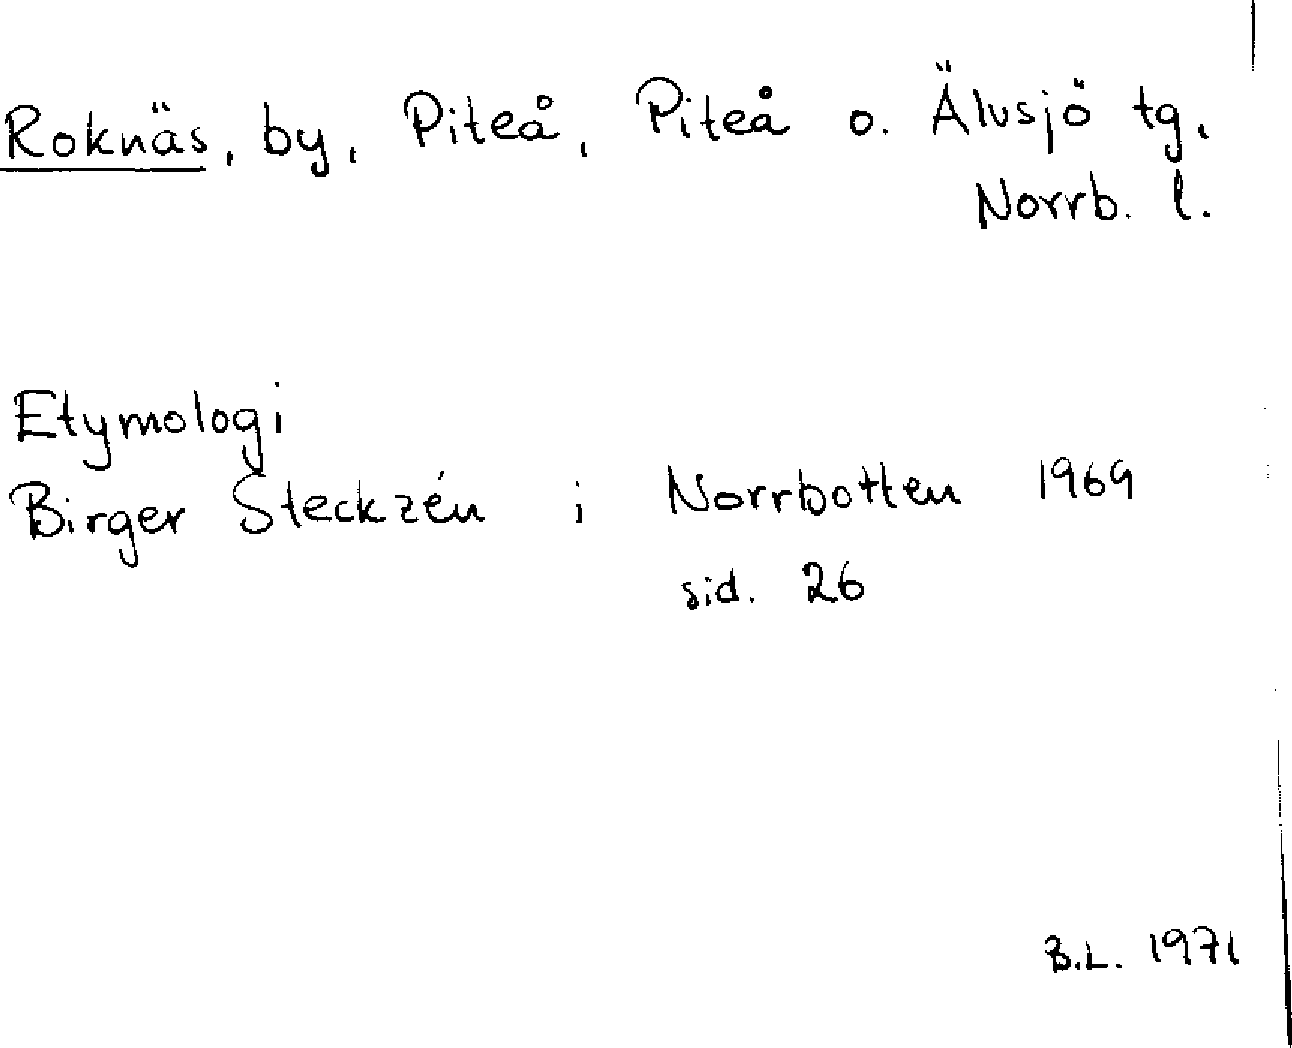 Roknäs, by, Piteå, Piteå o. Älvsjö tg,
Norrb. l.
Etymologi
Birger Steckzén i Norrbotten 1969
sid. 26
B.L. 1971